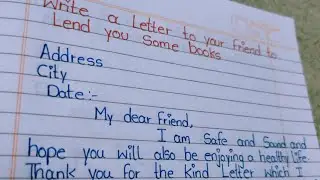 Write a Letter to your friend to
Lend you Some books
Address
City
Date:-
My dear friend,
I am Safe and Sound and
hope you will also be enjoying a healthy Life.
Thank you for the Kind Letter which I